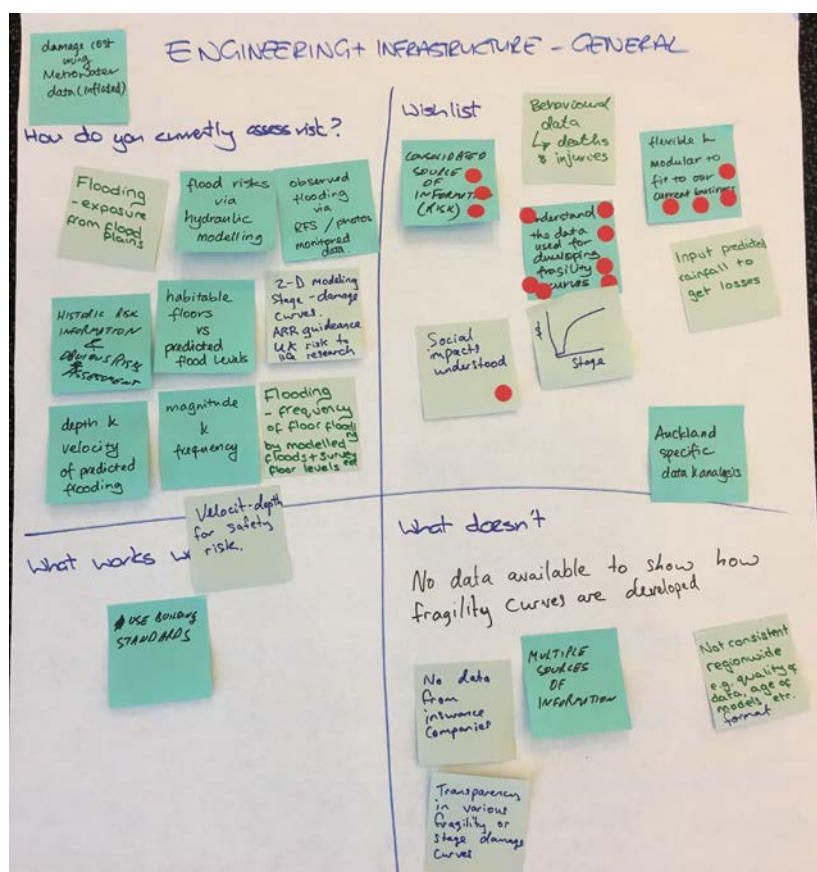 damage cost
using
Metrowater
data (inflated)
ENGINEERING + INFRASTRUCTURE - GENERAL
How do you currently assess risk?
Flooding
- exposure
from flood
plains
flood risks
via
hydraulic
modelling
observed
flooding
via
RFS / photos
monitored
data.
HISTORIC RISK
INFORMATION
&
OBVIOUS RISK
ASSESSMENT
habitable
floors
vs
predicted
flood levels
2-D modeling
Stage - damage
curves.
ARR guideance
UK risk to
life research
depth &
velocity
of predicted
flooding
magnitude
&
frequency
Flooding
- frequency
of floor flooding
by modelled
floods + survey
floor levels
Velocit-depth
for safety
risk.
Wishlist
CONSOLIDATED
SOURCE
OF
INFORMATION
(RISK)
Behavioural
data
↳ deaths
& injuries
flexible &
modular to
fit to our
current business
understand
the data
used for
developing
fragility
curves
Input predicted
rainfall to
get losses
Social
impacts
understood
$
Stage
Auckland
specific
data & analysis
What works
USE BUILDING
STANDARDS
What doesn't
No data available to show how
fragility curves are developed
No data
from
insurance
companies
MULTIPLE
SOURCES
OF
INFORMATION
Not consistent
regionwide
e.g. quality of
data, age of
models etc.
format
Transparency
in various
fragility or
stage damage
curves